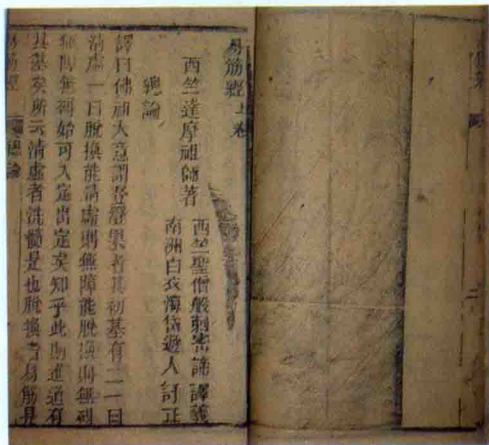 易筋經上卷
西竺達摩祖師著
西竺聖僧般剌密諦譯義
南洲白衣海岱遊人訂正
總論
譯曰佛祖大意謂登證果者其初基有二一曰
清虛一曰脫換能清虛則無障能脫換則無礙
無障無礙始可入定出定矣知乎此則進道有
其基矣所云清虛者洗髓是也脫換者易筋是
易筋經
總論